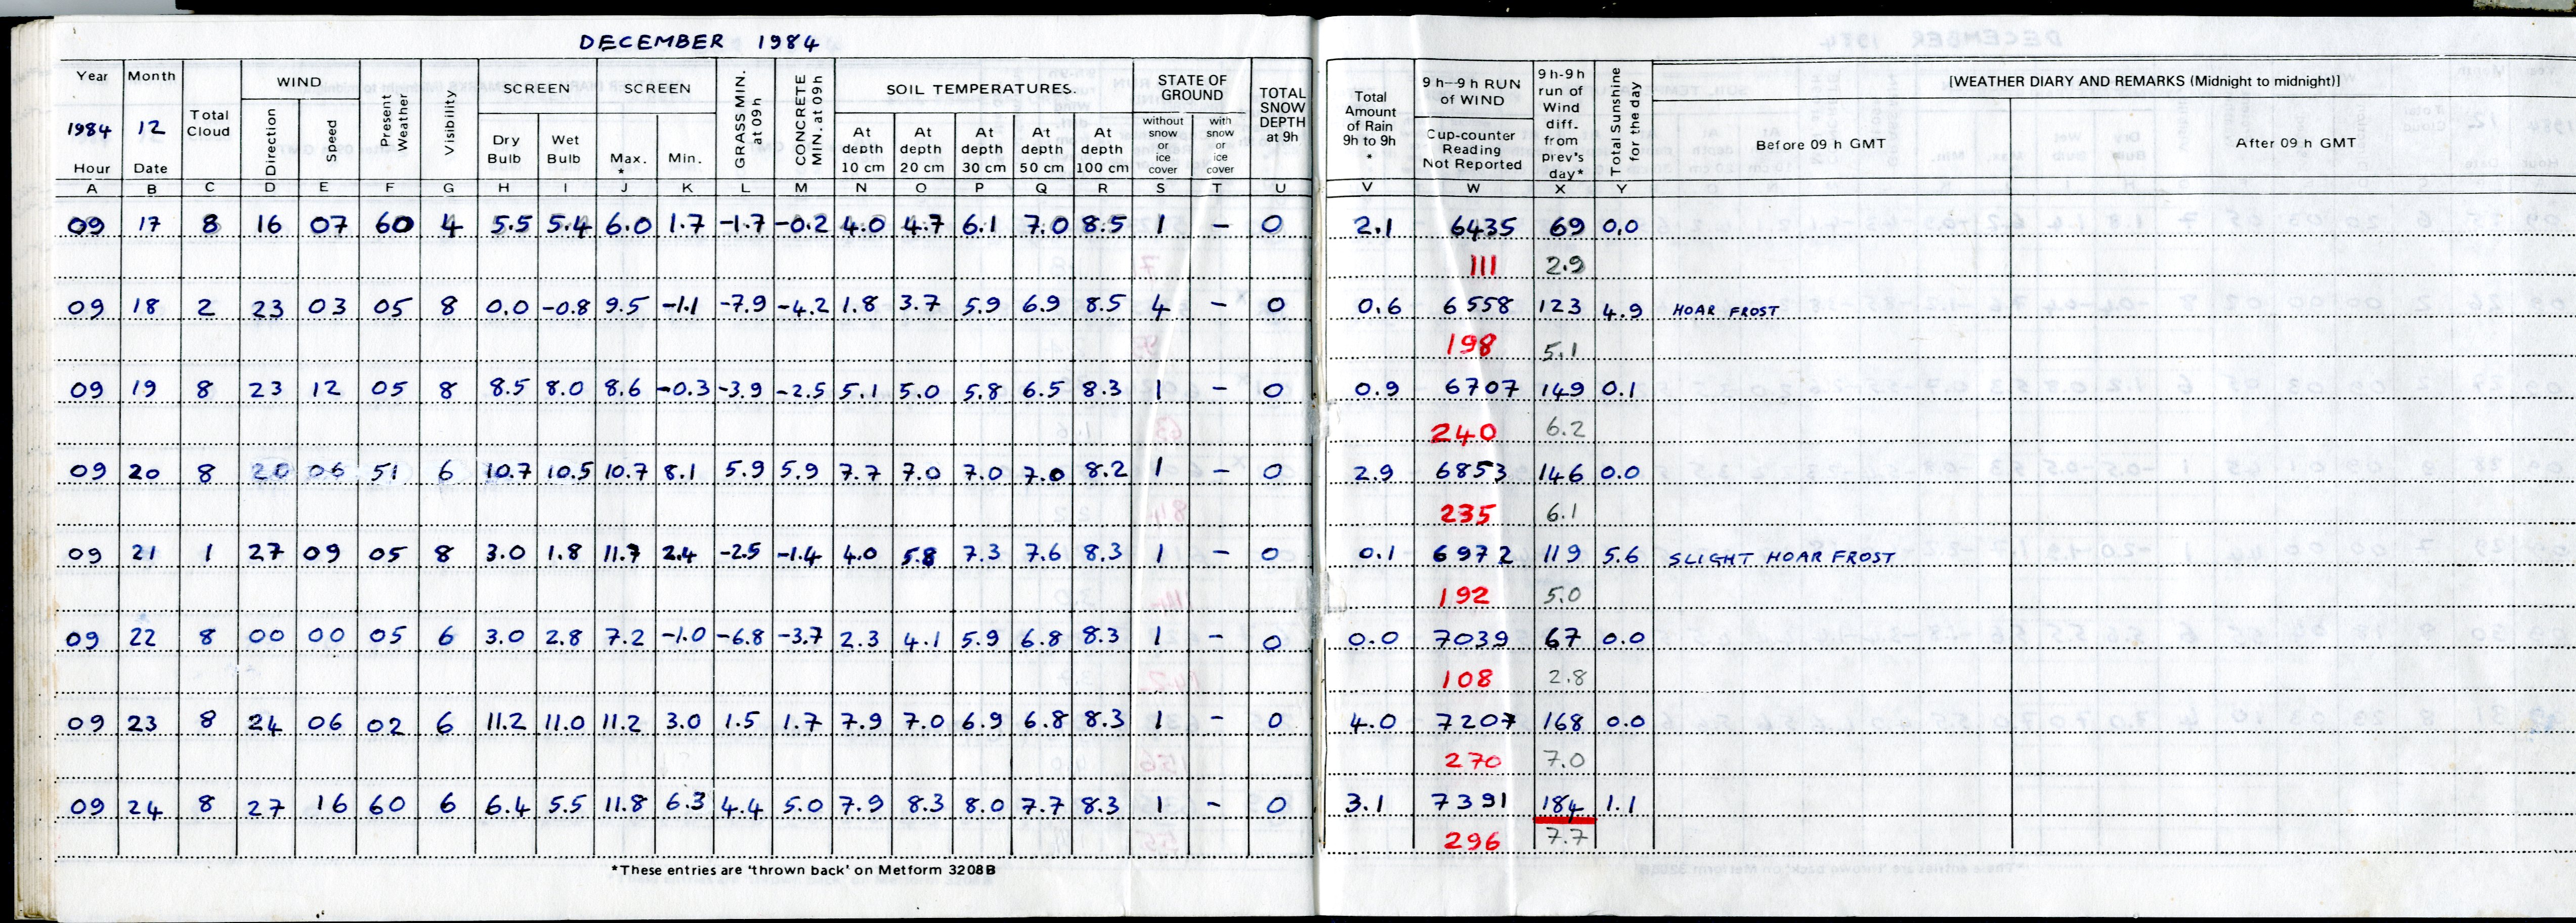 DECEMBER 1984
Year Month WIND SCREEN SCREEN SOIL TEMPERATURES. STATE OF GROUND
1984 12 Total Cloud Direction Speed Present Weather Visibility Dry Bulb Wet Bulb Max. * Min. GRASS MIN. at 09h CONCRETE MIN. at 09h At depth 10 cm At depth 20 cm At depth 30 cm At depth 50 cm At depth 100 cm without snow or ice cover with snow or ice cover TOTAL SNOW DEPTH at 9h
Total Amount of Rain 9h to 9h * 9 h—9 h RUN of WIND Cup-counter Reading Not Reported 9 h-9 h run of Wind diff. from prev's day* Total Sunshine for the day [WEATHER DIARY AND REMARKS (Midnight to midnight)]
Before 09 h GMT After 09 h GMT
Hour Date
A B C D E F G H I J K L M N O P Q R S T U V W X Y
09 17 8 16 07 60 4 5.5 5.4 6.0 1.7 -1.7 -0.2 4.0 4.7 6.1 7.0 8.5 1 – 0 2.1 6435 69 0.0
111 2.9
09 18 2 23 03 05 8 0.0 -0.8 9.5 -1.1 -7.9 -4.2 1.8 3.7 5.9 6.9 8.5 4 – 0 0.6 6558 123 4.9 HOAR FROST
198 5.1
09 19 8 23 12 05 8 8.5 8.0 8.6 -0.3 -3.9 -2.5 5.1 5.0 5.8 6.5 8.3 1 – 0 0.9 6707 149 0.1
240 6.2
09 20 8 20 06 51 6 10.7 10.5 10.7 8.1 5.9 5.9 7.7 7.0 7.0 7.0 8.2 1 – 0 2.9 6853 146 0.0
235 6.1
09 21 1 27 09 05 8 3.0 1.8 11.7 2.4 -2.5 -1.4 4.0 5.8 7.3 7.6 8.3 1 – 0 0.1 6972 119 5.6 SLIGHT HOAR FROST
192 5.0
09 22 8 00 00 05 6 3.0 2.8 7.2 -1.0 -6.8 -3.7 2.3 4.1 5.9 6.8 8.3 1 – 0 0.0 7039 67 0.0
108 2.8
09 23 8 24 06 02 6 11.2 11.0 11.2 3.0 1.5 1.7 7.9 7.0 6.9 6.8 8.3 1 – 0 4.0 7207 168 0.0
270 7.0
09 24 8 27 16 60 6 6.4 5.5 11.8 6.3 4.4 5.0 7.9 8.3 8.0 7.7 8.3 1 – 0 3.1 7391 184 1.1
296 7.7
*These entries are 'thrown back' on Metform 3208B